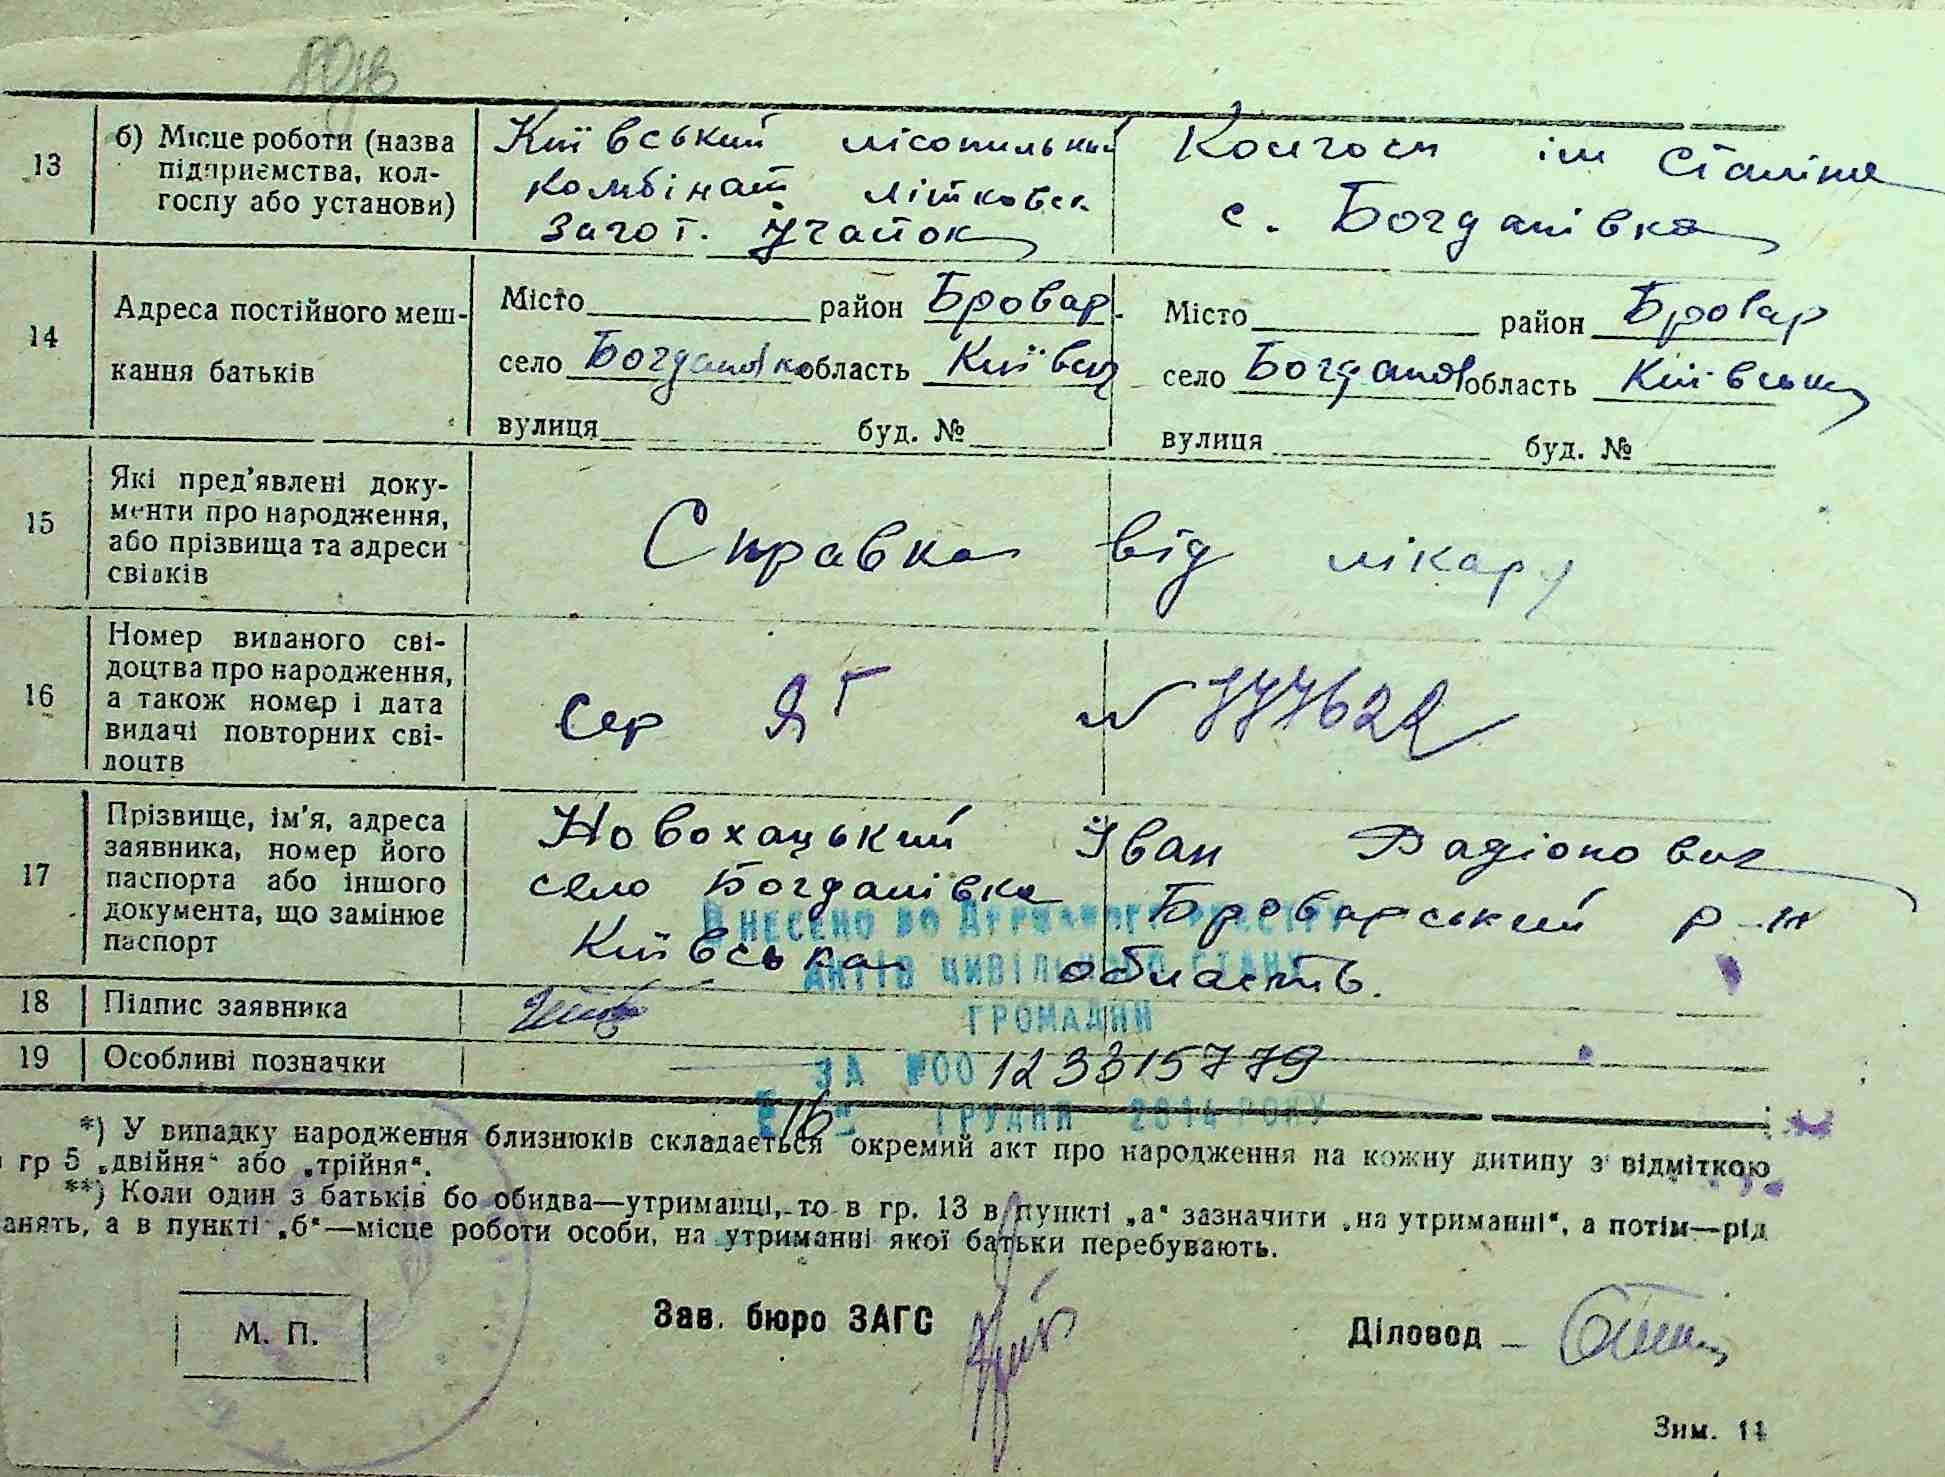 13 б) Місце роботи (назва підприємства, колгоспу або установи)
Київський лісопильний
комбінат Літковск
загот. учасок
Колгосп ім Сталіна
с. Богданівка
14 Адреса постійного мешкання батьків
Місто район Бровар.
село Богданівка область Київськ
вулиця буд. №
Місто район Бровар
село Богданів область Київськ
вулиця буд. №
15 Які пред'явлені документи про народження, або прізвища та адреси свідків
Справка від лікару
16 Номер виданого свідоцтва про народження, а також номер і дата видачі повторних свідоцтв
сер ЯГ № 777622
17 Прізвище, ім'я, адреса заявника, номер його паспорта або іншого документа, що замінює паспорт
Новохацький Іван Радіонович
село Богданівка Броварський р-н
Київська область.
ВНЕСЕНО ДО ДЕРЖАВНОГО РЕЄСТРУ
АКТІВ ЦИВІЛЬНОГО СТАНУ
ГРОМАДЯН
18 Підпис заявника
19 Особливі позначки
ЗА №00 123315779
16 ГРУДНЯ 2014 РОКУ
*) У випадку народження близнюків складається окремий акт про народження на кожну дитину з відміткою
гр 5 „двійня“ або „трійня“.
**) Коли один з батьків бо обидва—утриманці, то в гр. 13 в пункті „а“ зазначити „на утриманні“, а потім—рід
анять, а в пункті „б“—місце роботи особи, на утриманні якої батьки перебувають.
М. П.
Зав. бюро ЗАГС
Діловод
Зим. 11